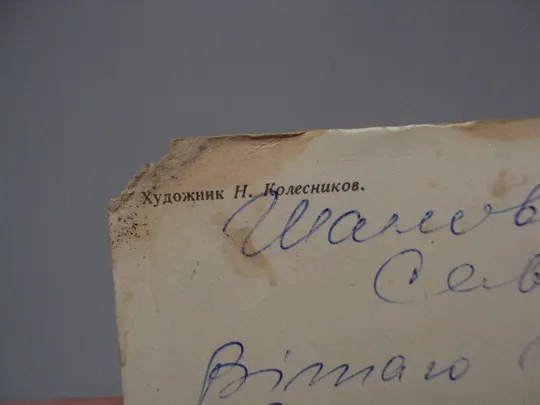 Художник Н. Колесников.
Шанов
Сев
Вітаю